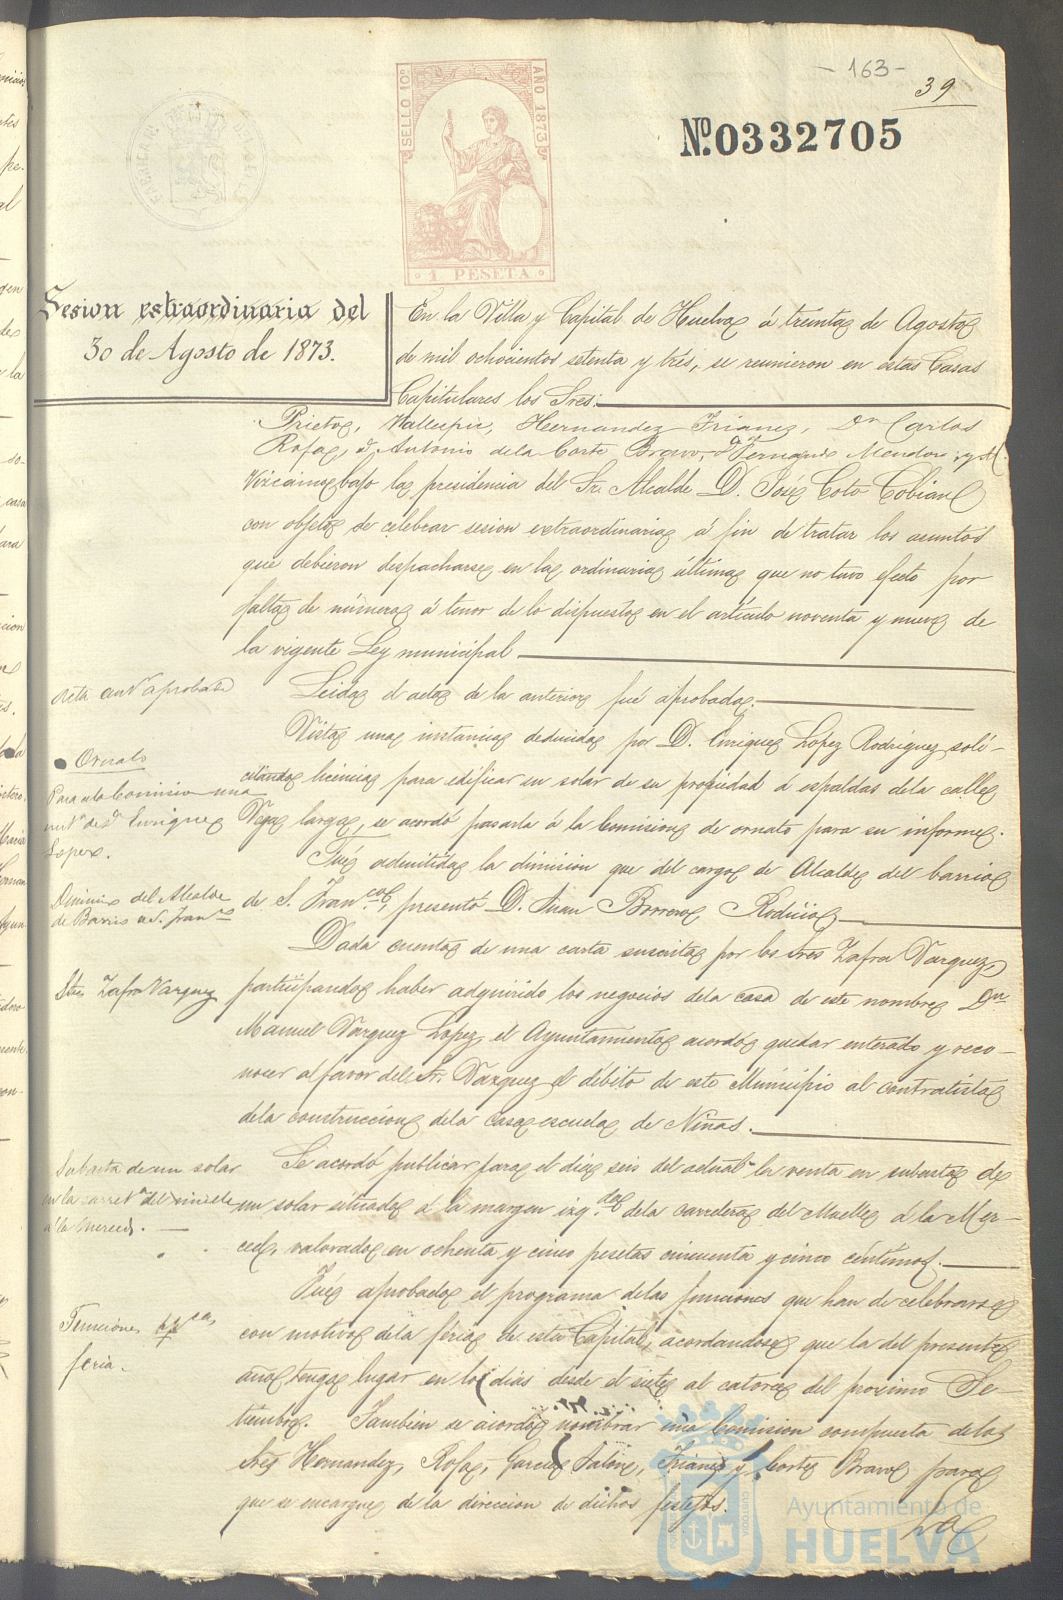 - 163 -
39
SELLO 10º
AÑO 1873
1 PESETA
Nº 0332705
Sesion estraordinaria del
30 de Agosto de 1873.
En la Villa y Capital de Huelva á treinta de Agosto
de mil ochocientos setenta y trés, se reunieron en estas Casas
Capitulares los Sres.
Prieto, Vallespin, Hernandez Trianez, Dn Carlos
Rofa, D. Antonio de la Corte Bravo, D. Fernando Mendoza y
Vizcaino bajo la presidencia del Sr. Alcalde D. José Coto Cobian
con objeto de celebrar sesion extraordinaria á fin de tratar los asuntos
que debieron despacharse en la ordinaria última que no tuvo efecto por
falta de número á tenor de lo dispuesto en el artículo noventa y nueve de
la vigente Ley municipal
Acta antr aprobada
Leida el acta de la anterior fué aprobada.
Ornato
Pase a la Comision una
inst.ª de D. Enrique
Lopez.
Vista una instancia deducida por D. Enrique Lopez Rodriguez, soli-
citando licencia para edificar un solar de su propiedad á espaldas de la calle
Vega larga, se acordó pasarla á la Comision de ornato para su informe.
Dimision del Alcalde
de Barrio de S. Franco
Fué admitida la dimision que del cargo de Alcalde del barrio
de S. Franco, presentó D. Juan Borrero Rodriguez
Stres Zafra Vazquez
Dada cuenta de una carta suscrita por los Sres Zafra Vazquez,
participando haber adquirido los negocios de la casa de este nombre Dn
Manuel Vazquez Lopez, el Ayuntamiento acordó quedar enterado y reco-
nocer al favor del Sr. Vazquez el débito de este Municipio al contratista
de la construccion de la casa escuela de Niñas.
Subasta de un solar
en la carretª del muelle
á la Merced.
Se acordó publicar para el dia seis del actual la venta en subasta de
un solar situado á la margen izqda de la carretera del Muelle á la Mer-
ced, valorado en ochenta y cinco pesetas cincuenta y cinco céntimos.
Funciones
feria.
Fué aprobado el programa de las funciones que han de celebrarse
con motivo de la feria de esta Capital, acordandose que la del presente
año tenga lugar en los dias desde el siete al catorce del proximo Se-
tiembre. Tambien se acordó nombrar una Comision compuesta de los
Sres Hernandez, Rofa, Garcia Jalon, Trianez y Corte Bravo para
que se encargue de la direccion de dichos festejos.
Ayuntamiento de
HUELVA